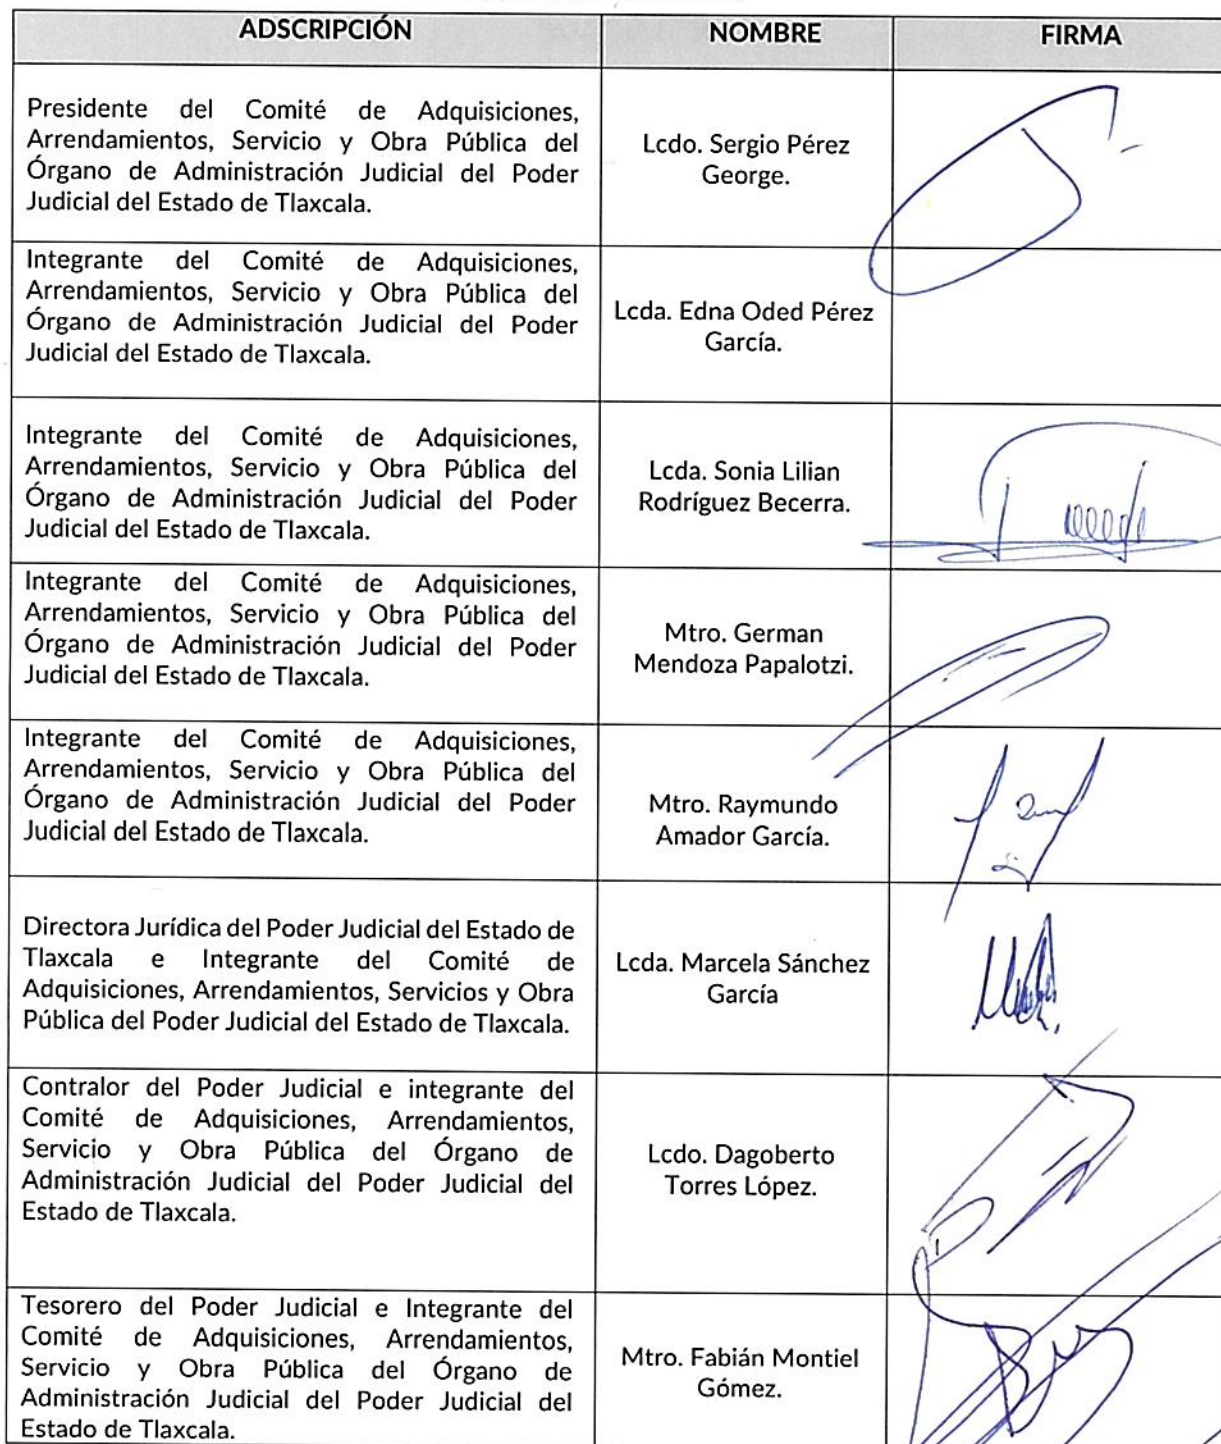 ADSCRIPCIÓN NOMBRE FIRMA
Presidente del Comité de Adquisiciones,
Arrendamientos, Servicio y Obra Pública del
Órgano de Administración Judicial del Poder
Judicial del Estado de Tlaxcala.
Lcdo. Sergio Pérez
George.
Integrante del Comité de Adquisiciones,
Arrendamientos, Servicio y Obra Pública del
Órgano de Administración Judicial del Poder
Judicial del Estado de Tlaxcala.
Lcda. Edna Oded Pérez
García.
Integrante del Comité de Adquisiciones,
Arrendamientos, Servicio y Obra Pública del
Órgano de Administración Judicial del Poder
Judicial del Estado de Tlaxcala.
Lcda. Sonia Lilian
Rodríguez Becerra.
Integrante del Comité de Adquisiciones,
Arrendamientos, Servicio y Obra Pública del
Órgano de Administración Judicial del Poder
Judicial del Estado de Tlaxcala.
Mtro. German
Mendoza Papalotzi.
Integrante del Comité de Adquisiciones,
Arrendamientos, Servicio y Obra Pública del
Órgano de Administración Judicial del Poder
Judicial del Estado de Tlaxcala.
Mtro. Raymundo
Amador García.
Directora Jurídica del Poder Judicial del Estado de
Tlaxcala e Integrante del Comité de
Adquisiciones, Arrendamientos, Servicios y Obra
Pública del Poder Judicial del Estado de Tlaxcala.
Lcda. Marcela Sánchez
García
Contralor del Poder Judicial e integrante del
Comité de Adquisiciones, Arrendamientos,
Servicio y Obra Pública del Órgano de
Administración Judicial del Poder Judicial del
Estado de Tlaxcala.
Lcdo. Dagoberto
Torres López.
Tesorero del Poder Judicial e Integrante del
Comité de Adquisiciones, Arrendamientos,
Servicio y Obra Pública del Órgano de
Administración Judicial del Poder Judicial del
Estado de Tlaxcala.
Mtro. Fabián Montiel
Gómez.